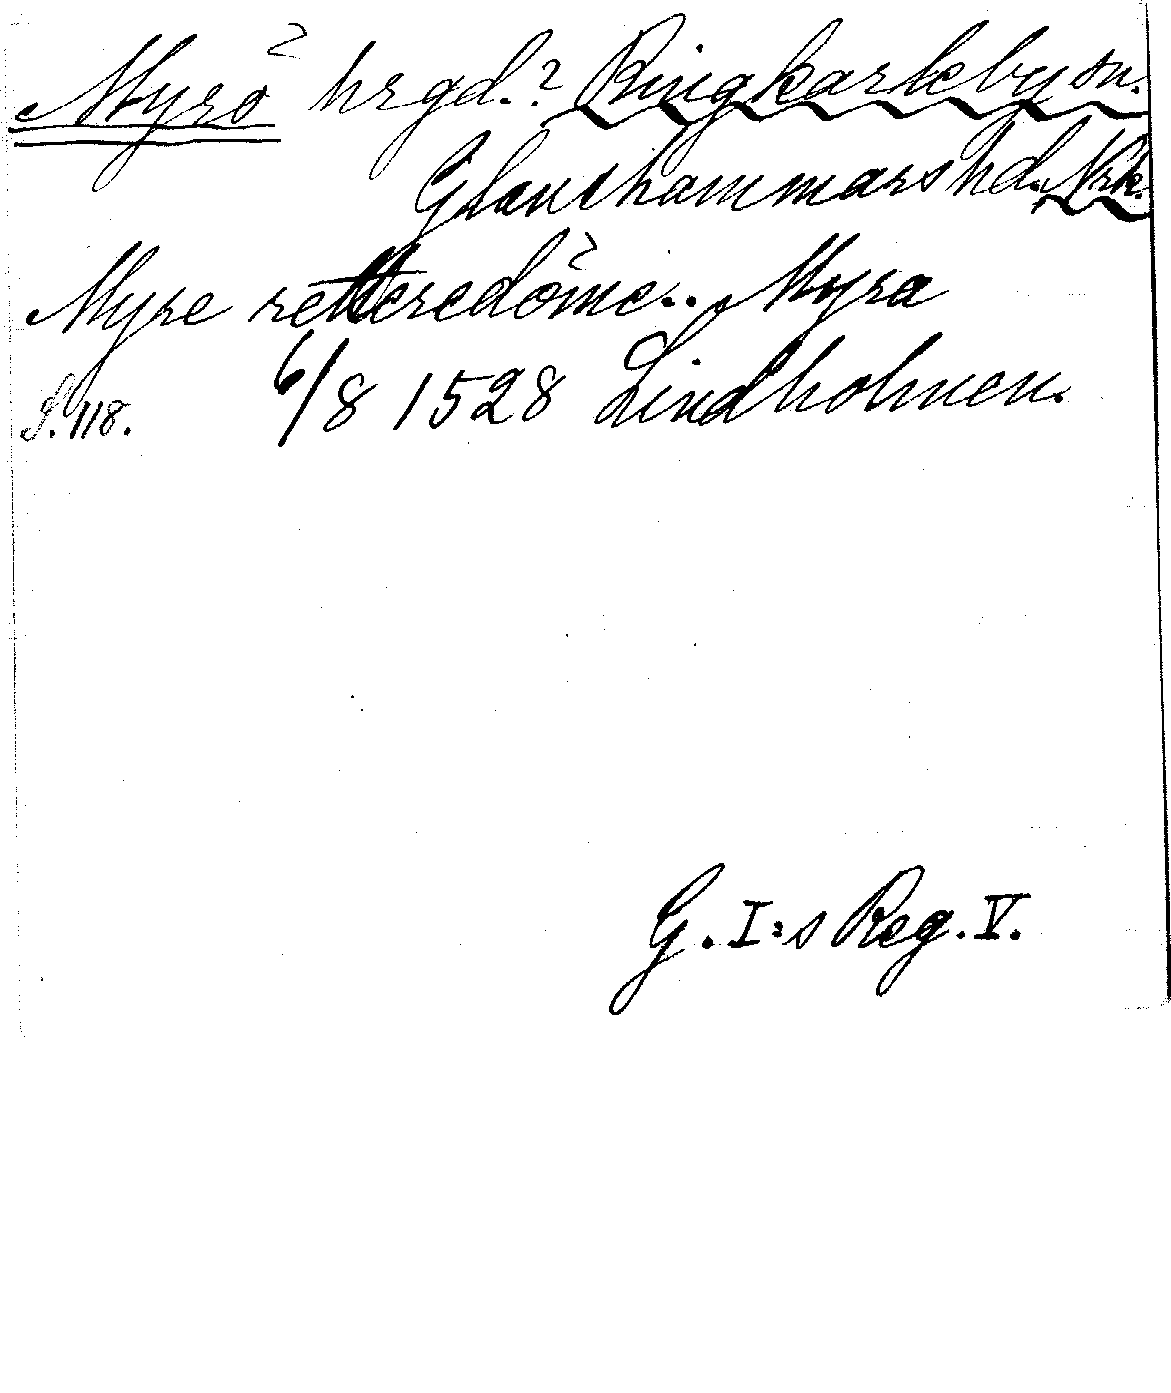 Myrö hrgd.? Ringkarleby sn.
Glanshammars hd. Nrk.
Myre retteredöme.. Myra
S. 118. 6/8 1528 Lindholmen.
G. I:s Reg. V.